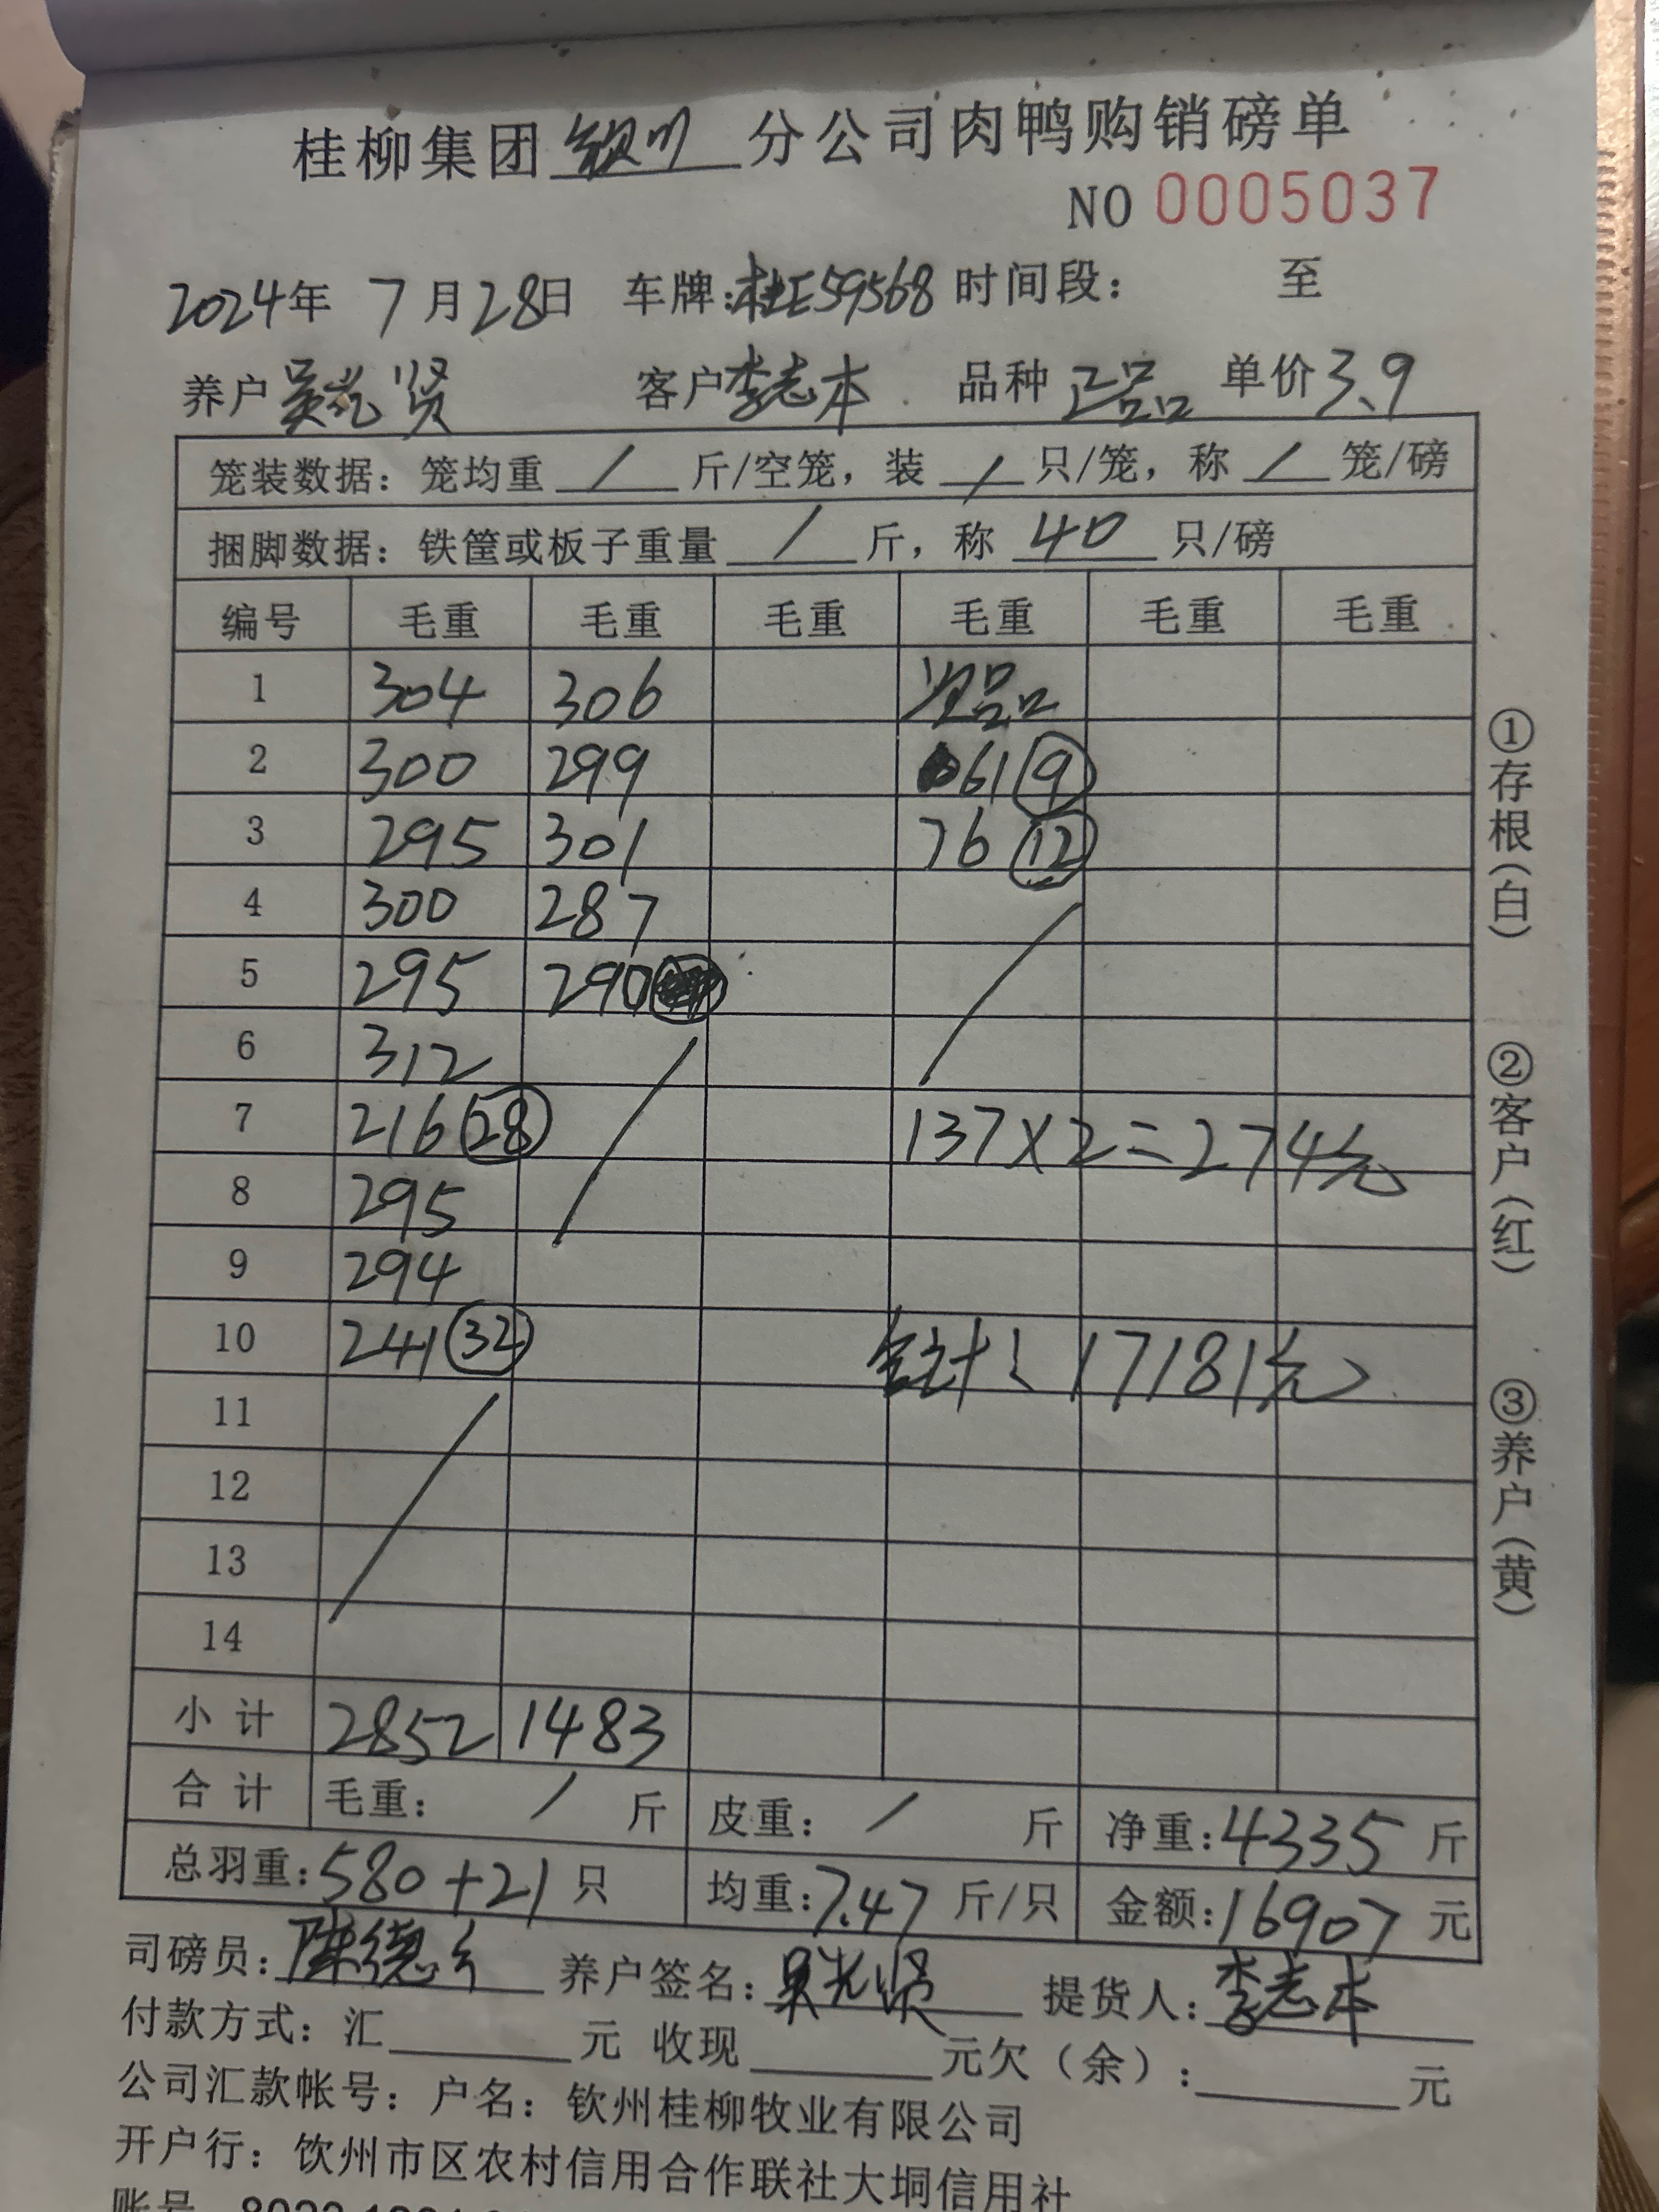 桂柳集团 钦州 分公司肉鸭购销磅单
NO 0005037
2024年 7月28日 车牌:桂E59568 时间段: 至
养户 吴光贤 客户 李志本 品种 正品 单价 3.9
笼装数据: 笼均重 / 斤/空笼, 装 / 只/笼, 称 / 笼/磅
捆脚数据: 铁筐或板子重量 / 斤, 称 40 只/磅
编号 毛重 毛重 毛重 毛重 毛重 毛重
1 304 306 次品
2 300 299 61 9
3 295 301 76 12
4 300 287
5 295 290
6 312
7 216 28 137×2=274元
8 295
9 294
10 241 32 合计: 17181元
11
12
13
14
小计 2852 1483
合计 毛重: / 斤 皮重: / 斤 净重: 4335 斤
总羽重: 580+21 只 均重: 7.47 斤/只 金额: 16907 元
司磅员: 陈德 养户签名: 吴光贤 提货人: 李志本
付款方式: 汇 元 收现 元欠(余): 元
公司汇款帐号: 户名: 钦州桂柳牧业有限公司
开户行: 钦州市区农村信用合作联社大垌信用社
账号
①存根(白)
②客户(红)
③养户(黄)